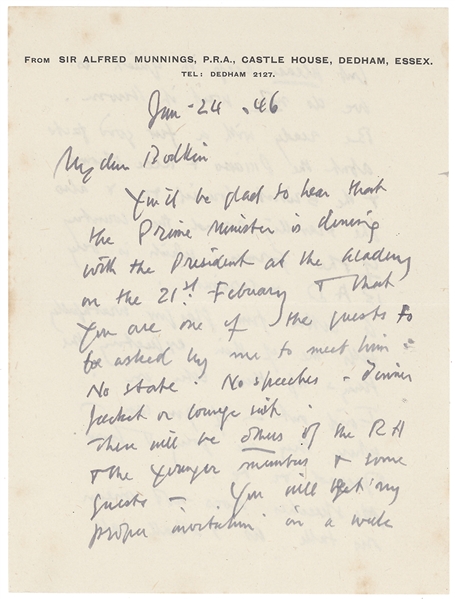 FROM SIR ALFRED MUNNINGS, P.R.A., CASTLE HOUSE, DEDHAM, ESSEX.
TEL: DEDHAM 2127.
Jan - 24 . 46
My dear Bodkin
You'll be glad to hear that
the Prime Minister is dining
with the President at the Academy
on the 21st Febuary & that
You are one of the guests to
be asked by me to meet him -
No state - No speeches - dinner
jacket or lounge suit -
There will be others of the RA
& the younger members & some
guests - You will get my
proper invitation in a week